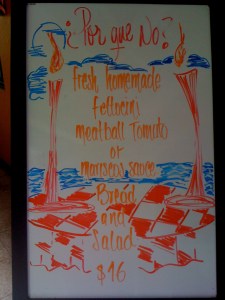 ¿Por que No?
fresh homemade
fettocini
meatball Tomato
or
mariscos sauce
Bread
and
Salad
$16